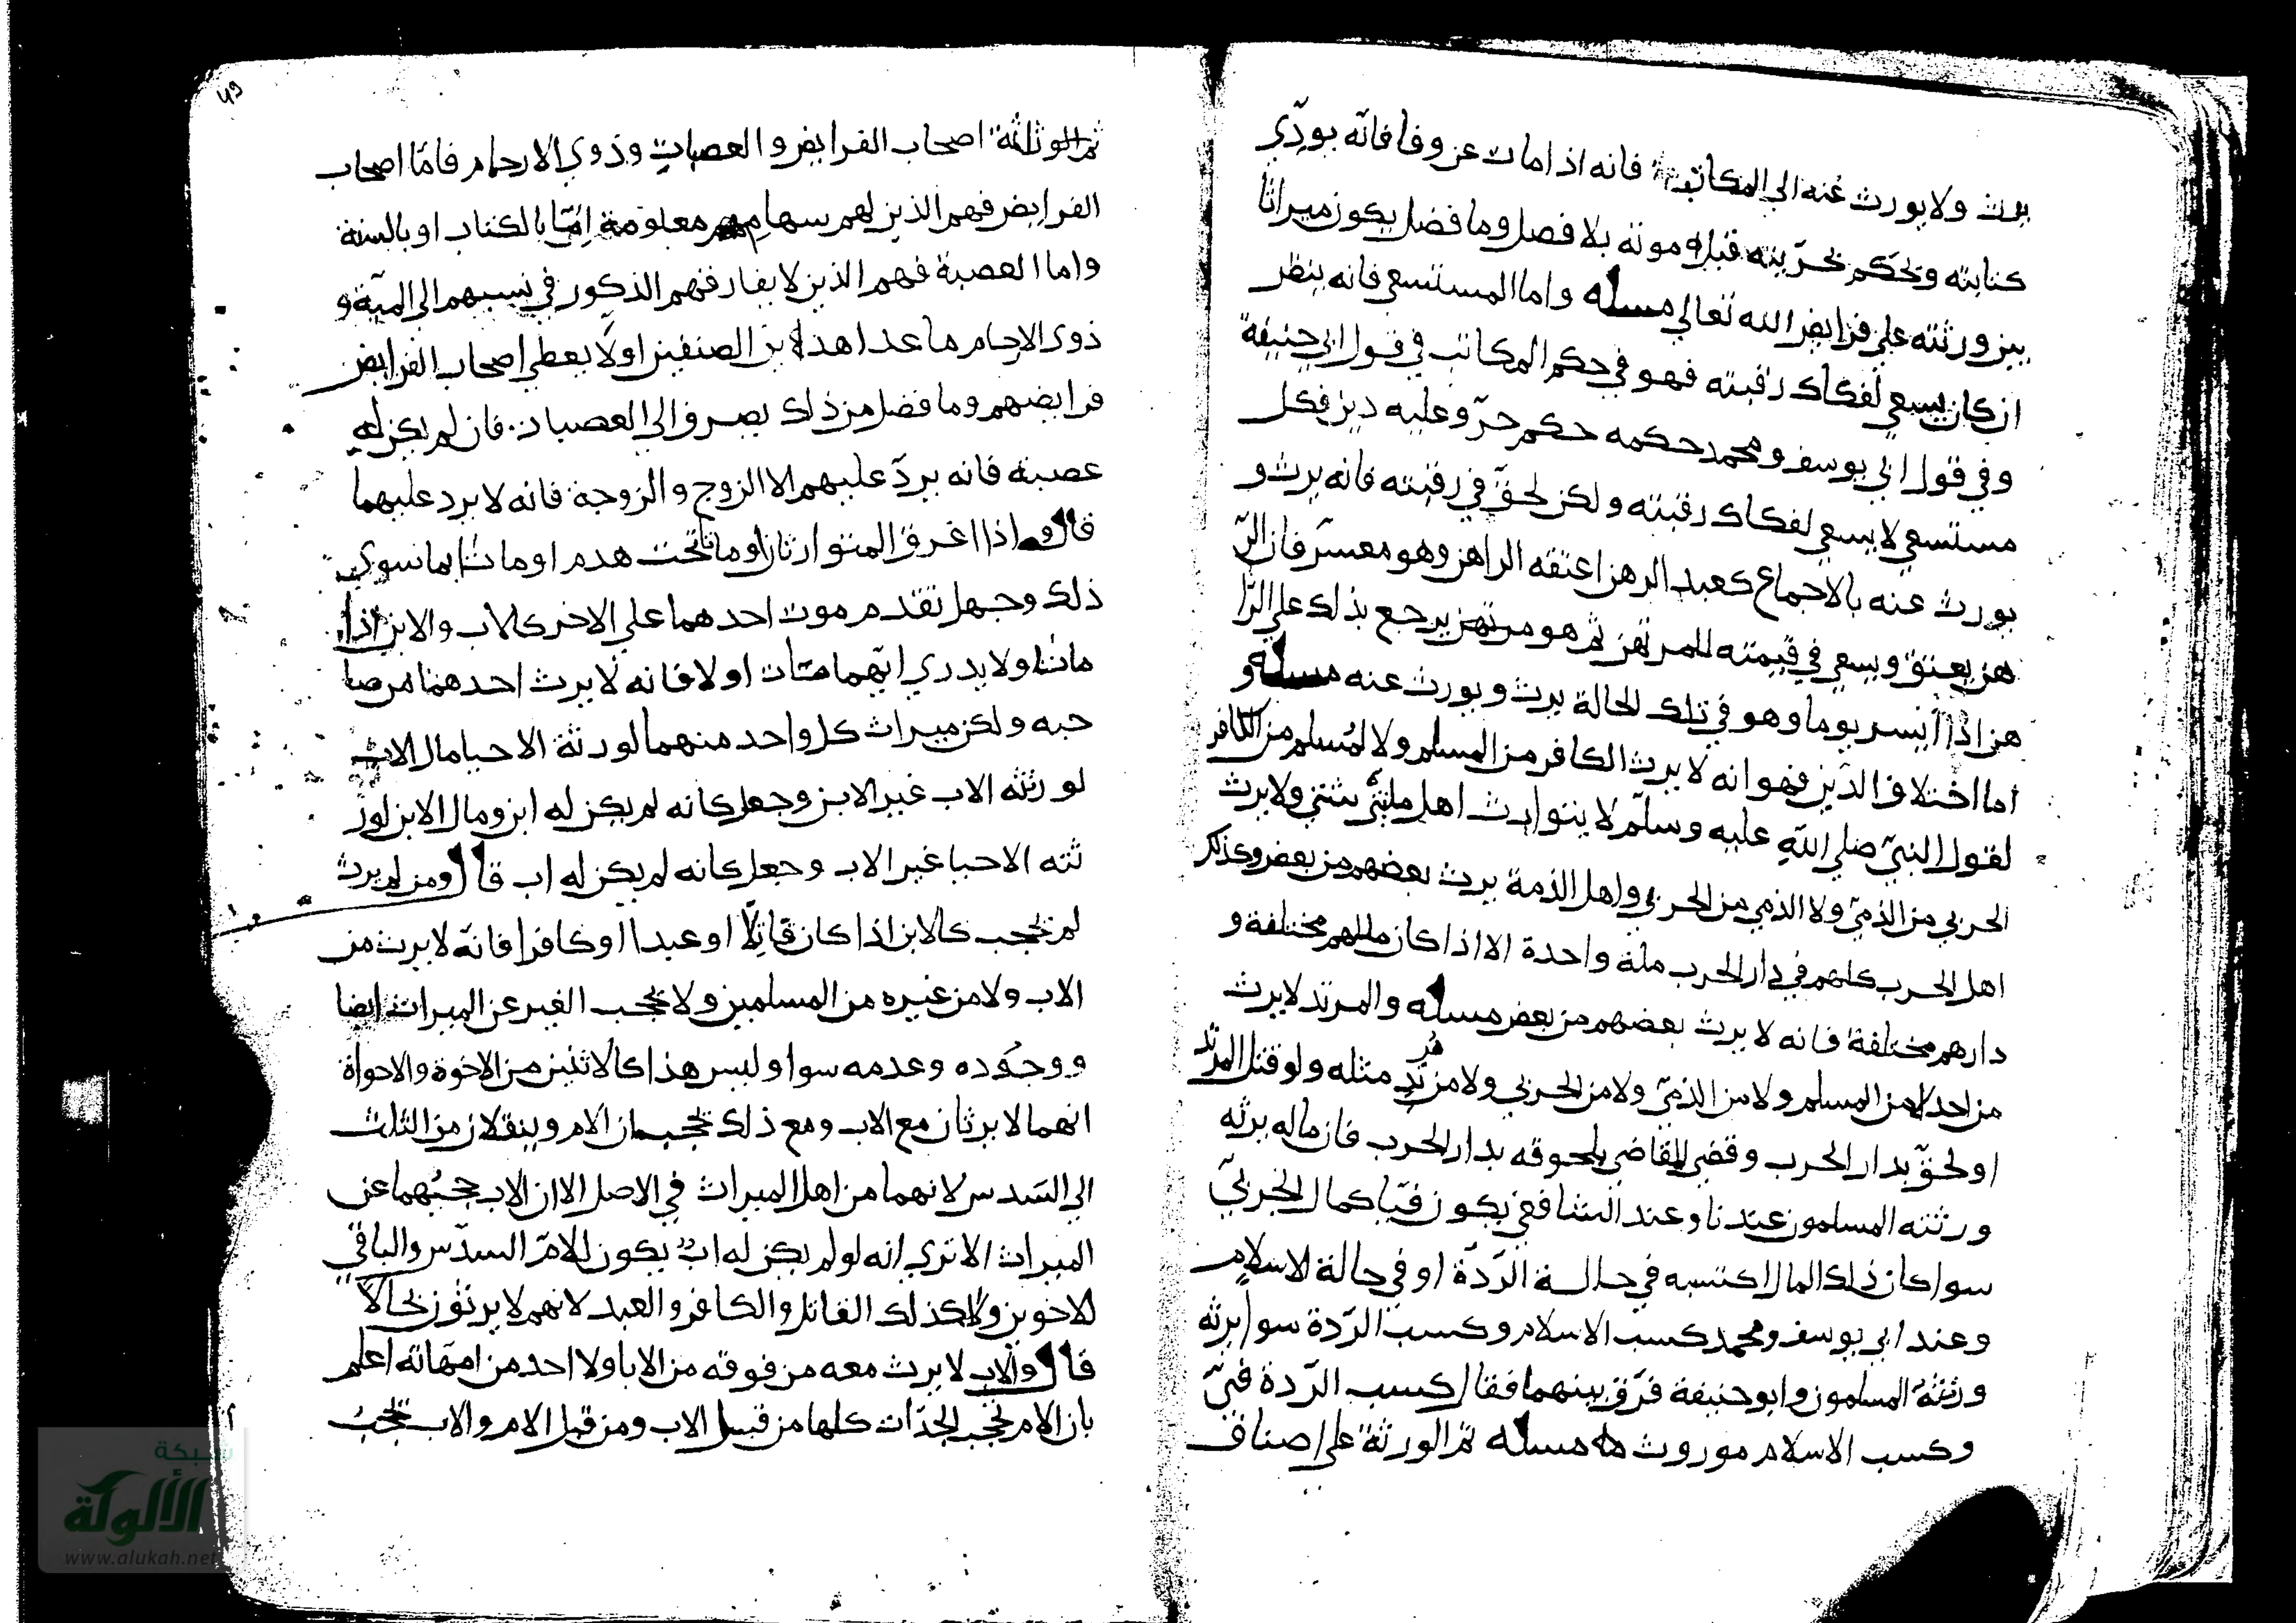 يرث ولا يورث عنه الي المكاتب فانه اذا مات عن وفا فانه يودّي
كتابته ويحكم بحرّيته قبل موته بلا فصل وما فضل يكون ميراثا
بين ورثته علي فرايض الله تعالي مسئله واما المستسعي فانه ينظر
ان كان يسعي لفكاك رقبته فهو في حكم المكاتب في قول ابي حنيفة
وفي قول ابي يوسف ومحمد حكمه حكم حرّ وعليه دين فكل
مستسعي لا يسعي لفكاك رقبته ولكن لحقّ في رقبته فانه يرث و
يورث عنه بالاجماع كعبد الرهن اعتقه الراهن وهو معسر فان الر
هن يعتق ويسعي في قيمته للمرتهن ثم هو يرجع بذلك علي الرّا
هن اذا ايسر يوما وهو في تلك الحالة يرث ويورث عنه مسئله و
اما اختلاف الدّين فهو انه لا يرث الكافر من المسلم ولا المسلم من الكافر
لقول النبيّ صلي الله عليه وسلّم لا يتوارث اهل ملتين بشئ ولا يرث
الحربي من الذميّ ولا الذمي من الحربي واهل الذمة يرث بعضهم من بعض وكذلك
اهل الحرب كلهم في دار الحرب ملة واحدة الا اذا كان مللهم مختلفة و
دارهم مختلفة فانه لا يرث بعضهم من بعض مسئله والمرتد لا يرث
من احد لا من المسلم ولا من الذميّ ولا من الحربي ولا من مرتد مثله ولو قتل المرتد
او لحق بدار الحرب وقضي القاضي بلحوقه بدار الحرب فان ماله يرثه
ورثته المسلمون عندنا وعند الشافعي يكون فيّا كمال الحربيّ
سوا كان ذلك المال اكتسبه في حالة الردّة او في حالة الاسلام
وعند ابي يوسف ومحمد كسب الاسلام وكسب الردّة سوا يرثه
ورثته المسلمون وابو حنيفة فرّق بينهما فقال كسب الردّة فيّ
وكسب الاسلام موروث مسئله ثم الورثة علي اصناف
49
ثلثة اصحاب الفرايض والعصبات وذوي الارحام فامّا اصحاب
الفرايض فهم الذين لهم سهام معلومة امّا بالكتاب او بالسنة
واما العصبة فهم الذين لا يفارقهم الذكور في نسبهم الي الميّة و
ذوي الارحام ما عدا هذين الصنفين اولا يعطي اصحاب الفرايض
فرايضهم وما فضل من ذلك يصرف الي العصبات فان لم يكن له
عصبة فانه يردّ عليهم الا الزوج والزوجة فانه لا يرد عليهما
قال واذا اغرق المتوارثان او ماتا تحت هدم او ماتا بما سوي
ذلك وجهل تقدم موت احدهما علي الاخر كالاب والابن اذا
ماتا ولا يدري ايهما مات اولا فانه لا يرث احدهما من صا
حبه ولكن ميراث كل واحد منهما لورثة الاحيا مال الاب
لورثته الاب غير الابن وجعل كانه لم يكن له ابن ومال الابن لور
ثته الاحيا غير الاب وجعل كانه لم يكن له اب قال ومن لم يرث
لم يحجب كالابن اذا كان قاتلا او عبدا او كافرا فانه لا يرث من
الاب ولا من غيره من المسلمين ولا يحجب الغير عن الميراث ايضا
ووجوده وعدمه سوا وليس هذا كالاثنين من الاخوة والاخواة
انهما لا يرثان مع الاب ومع ذلك يحجبان الام وينقلان من الثلث
الي السّدس لانهما من اهل الميراث في الاصل الا ان الاب حجبهما عن
الميراث الا تري انه لو لم يكن له اب يكون للامّ السدّس والباقي
للاخوين ولا كذلك القاتل والكافر والعبد لانهم لا يرثون بحال
قال والاب لا يرث معه من فوقه من الابا ولا احد من امهاته اعلم
بان الام تحجب الجدّات كلها من قبل الاب ومن قبل الام والاب يحجب
شبكة
الألوكة
www.alukah.net